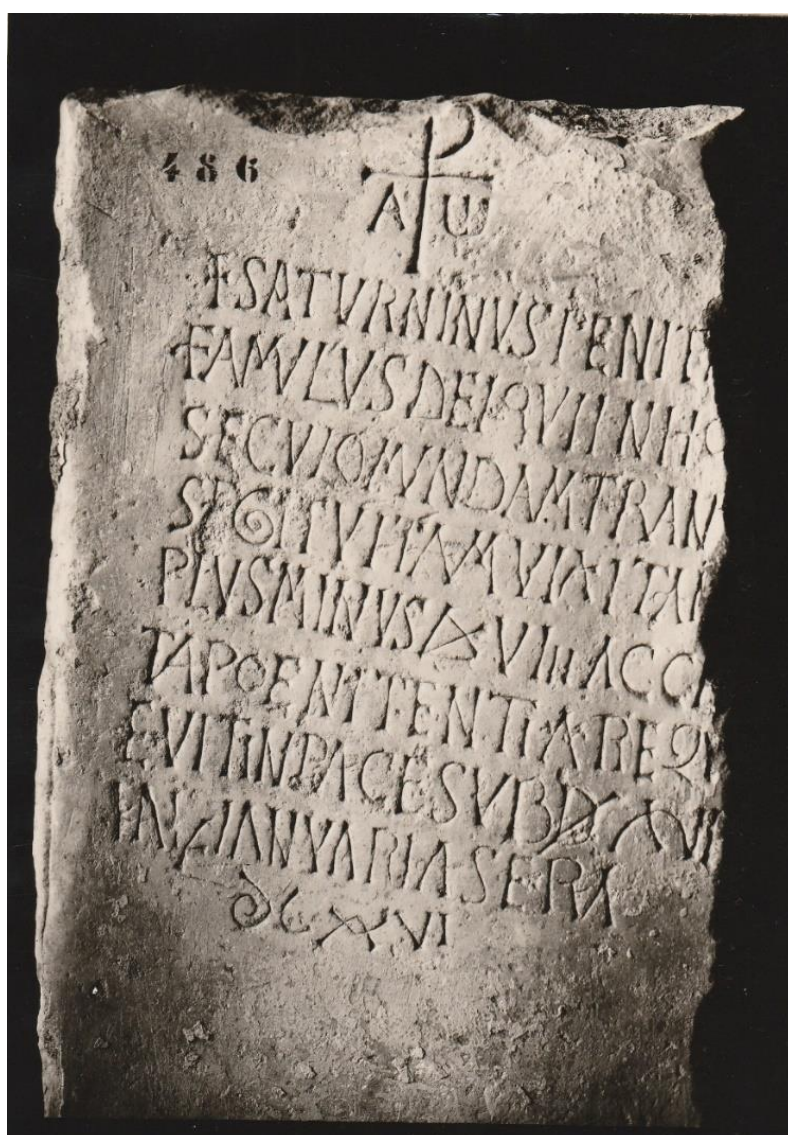 486
⳨
A ω
+ SATVRNINVS PENIT
FAMVLVS DEI QVI IN HO
SECVLO MVNDAM TRAN
SEGIT VITAM VIXIT AN
PLVS MINVS LXVIII ACCE
TA POENITENTIA REQV
EVIT IN PACE SVB D XVII
IANVARIAS ERA
DCXVI